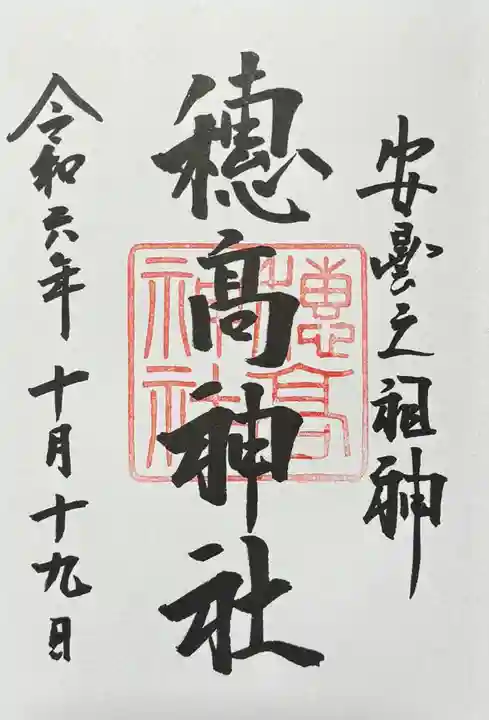 安曇之祖神
穂髙神社
穂髙神社
令和六年 十月十九日